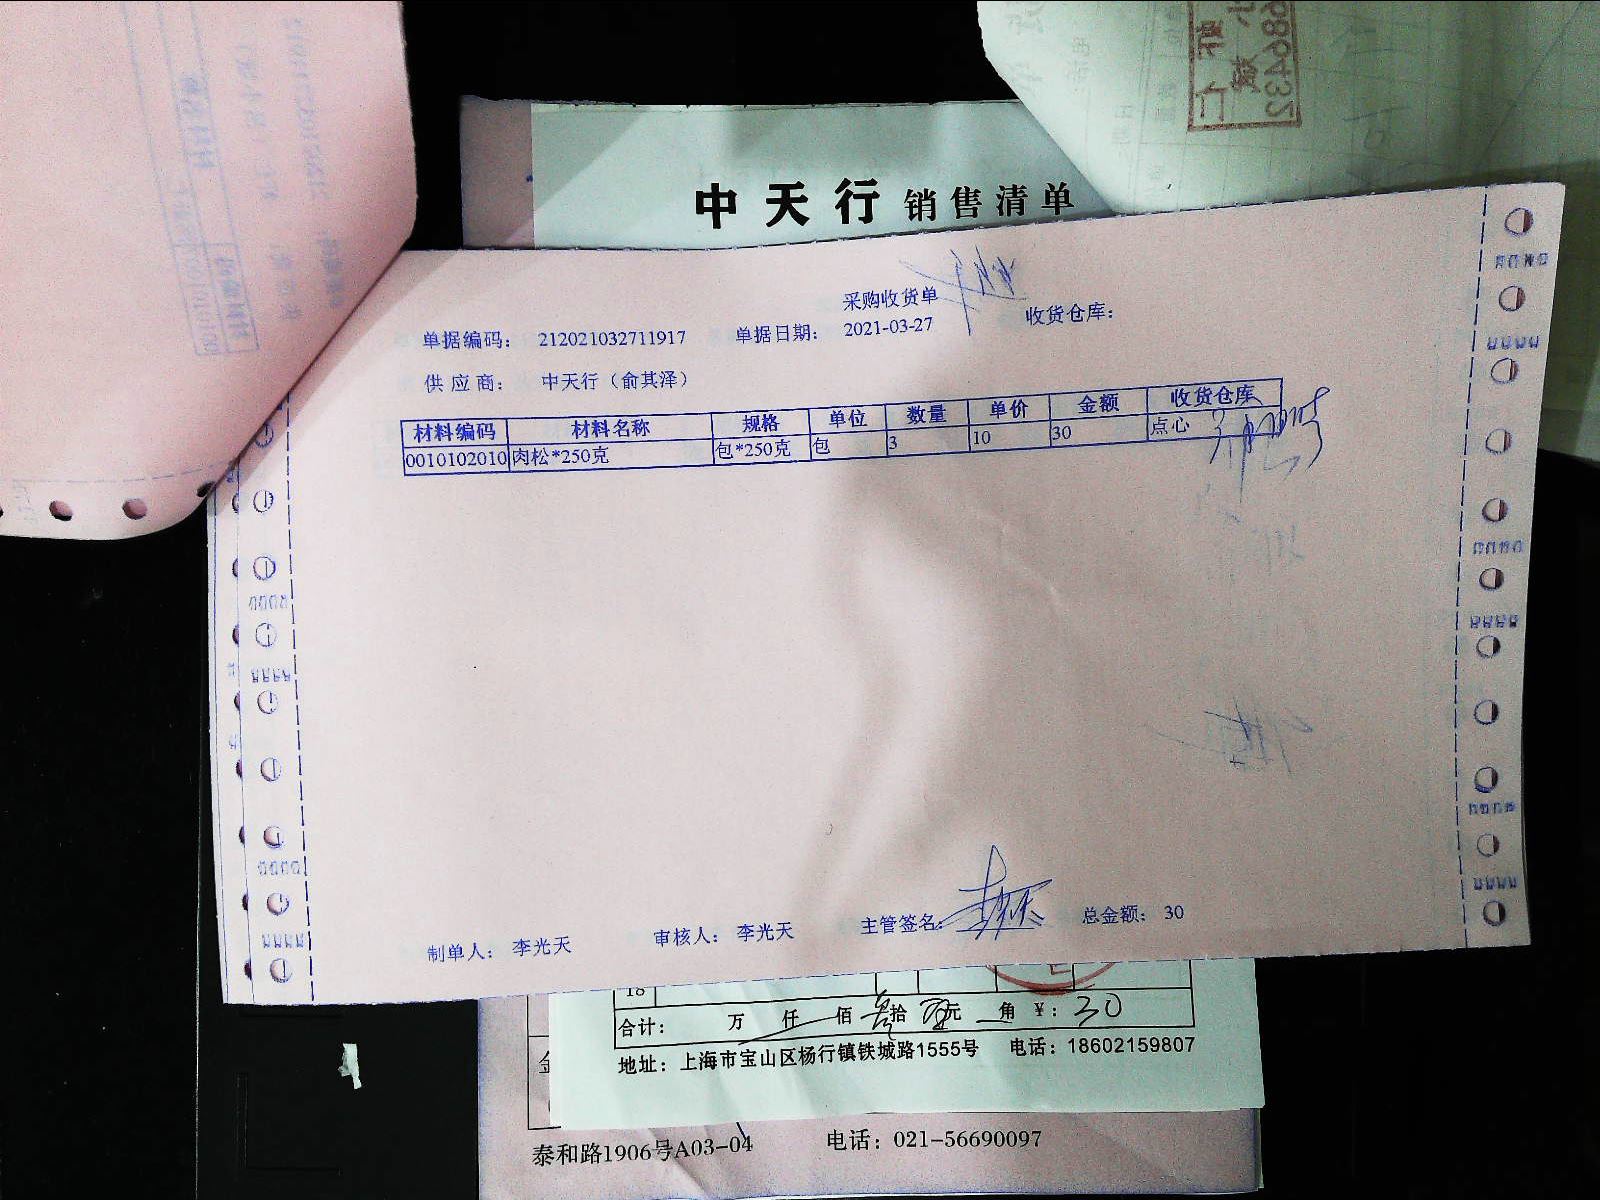 中天行 销售清单
采购收货单
单据编码： 212021032711917 单据日期： 2021-03-27 收货仓库：
供应商： 中天行（俞其泽）
材料编码 材料名称 规格 单位 数量 单价 金额 收货仓库
0010102010 肉松*250克 包*250克 包 3 10 30 点心
制单人： 李光天 审核人： 李光天 主管签名： 总金额： 30
18
合计： 万 仟 佰 叁拾 元 角 ¥： 30
地址：上海市宝山区杨行镇铁城路1555号 电话：18602159807
泰和路1906号A03-04 电话：021-56690097